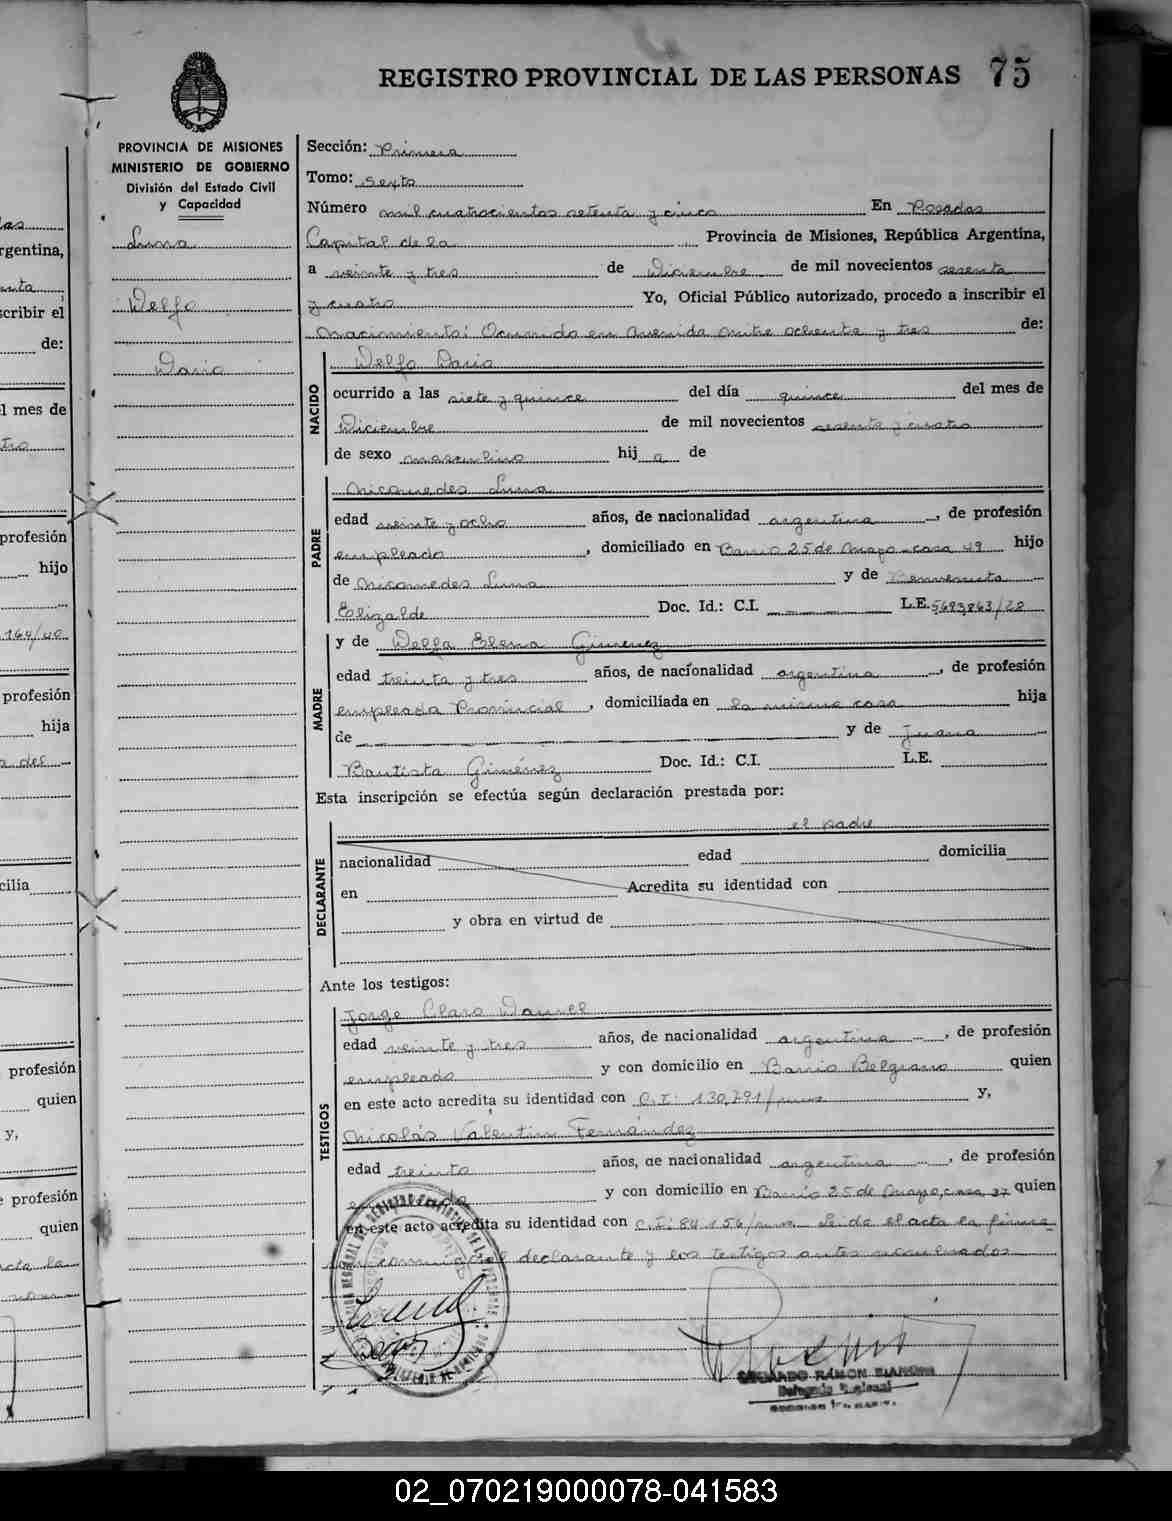 REGISTRO PROVINCIAL DE LAS PERSONAS 75
PROVINCIA DE MISIONES
MINISTERIO DE GOBIERNO
División del Estado Civil
y Capacidad
Luna
Welfo
Dario
Sección: Primera
Tomo: Sexto
Número mil cuatrocientos setenta y cinco En Posadas
Capital de la Provincia de Misiones, República Argentina,
a veinte y tres de Diciembre de mil novecientos sesenta
y cuatro Yo, Oficial Público autorizado, procedo a inscribir el
nacimiento: Ocurrido en Avenida Mitre ochenta y tres de:
NACIDO
Welfo Dario
ocurrido a las siete y quince del día quince del mes de
Diciembre de mil novecientos sesenta y cuatro
de sexo masculino hij o de
PADRE
Nicomedes Luna
edad veinte y ocho años, de nacionalidad argentina, de profesión
empleado, domiciliado en Barrio 25 de Mayo - casa 49 hijo
de Nicomedes Luna y de Benvenuta
Elizalde Doc. Id.: C.I. L.E. 5693863/22
MADRE
y de Welfa Elena Gimenez
edad treinta y tres años, de nacionalidad argentina, de profesión
empleada Provincial, domiciliada en la misma casa hija
de y de Juana
Bautista Giménez Doc. Id.: C.I. L.E.
Esta inscripción se efectúa según declaración prestada por:
DECLARANTE
el padre
nacionalidad edad domicilia
en Acredita su identidad con
y obra en virtud de
Ante los testigos:
TESTIGOS
Jorge Claro Daniel
edad veinte y tres años, de nacionalidad argentina, de profesión
empleado y con domicilio en Barrio Belgrano quien
en este acto acredita su identidad con C.I: 130.791/mnes y,
Nicolás Valentin Fernández
edad treinta años, de nacionalidad argentina, de profesión
y con domicilio en Barrio 25 de Mayo, casa 37 quien
en este acto acredita su identidad con C.I: 84.156/mnes. Leída el acta la firma
con conmigo el declarante y los testigos antes nombrados
RAMON
Delegado Regional
02_070219000078-041583